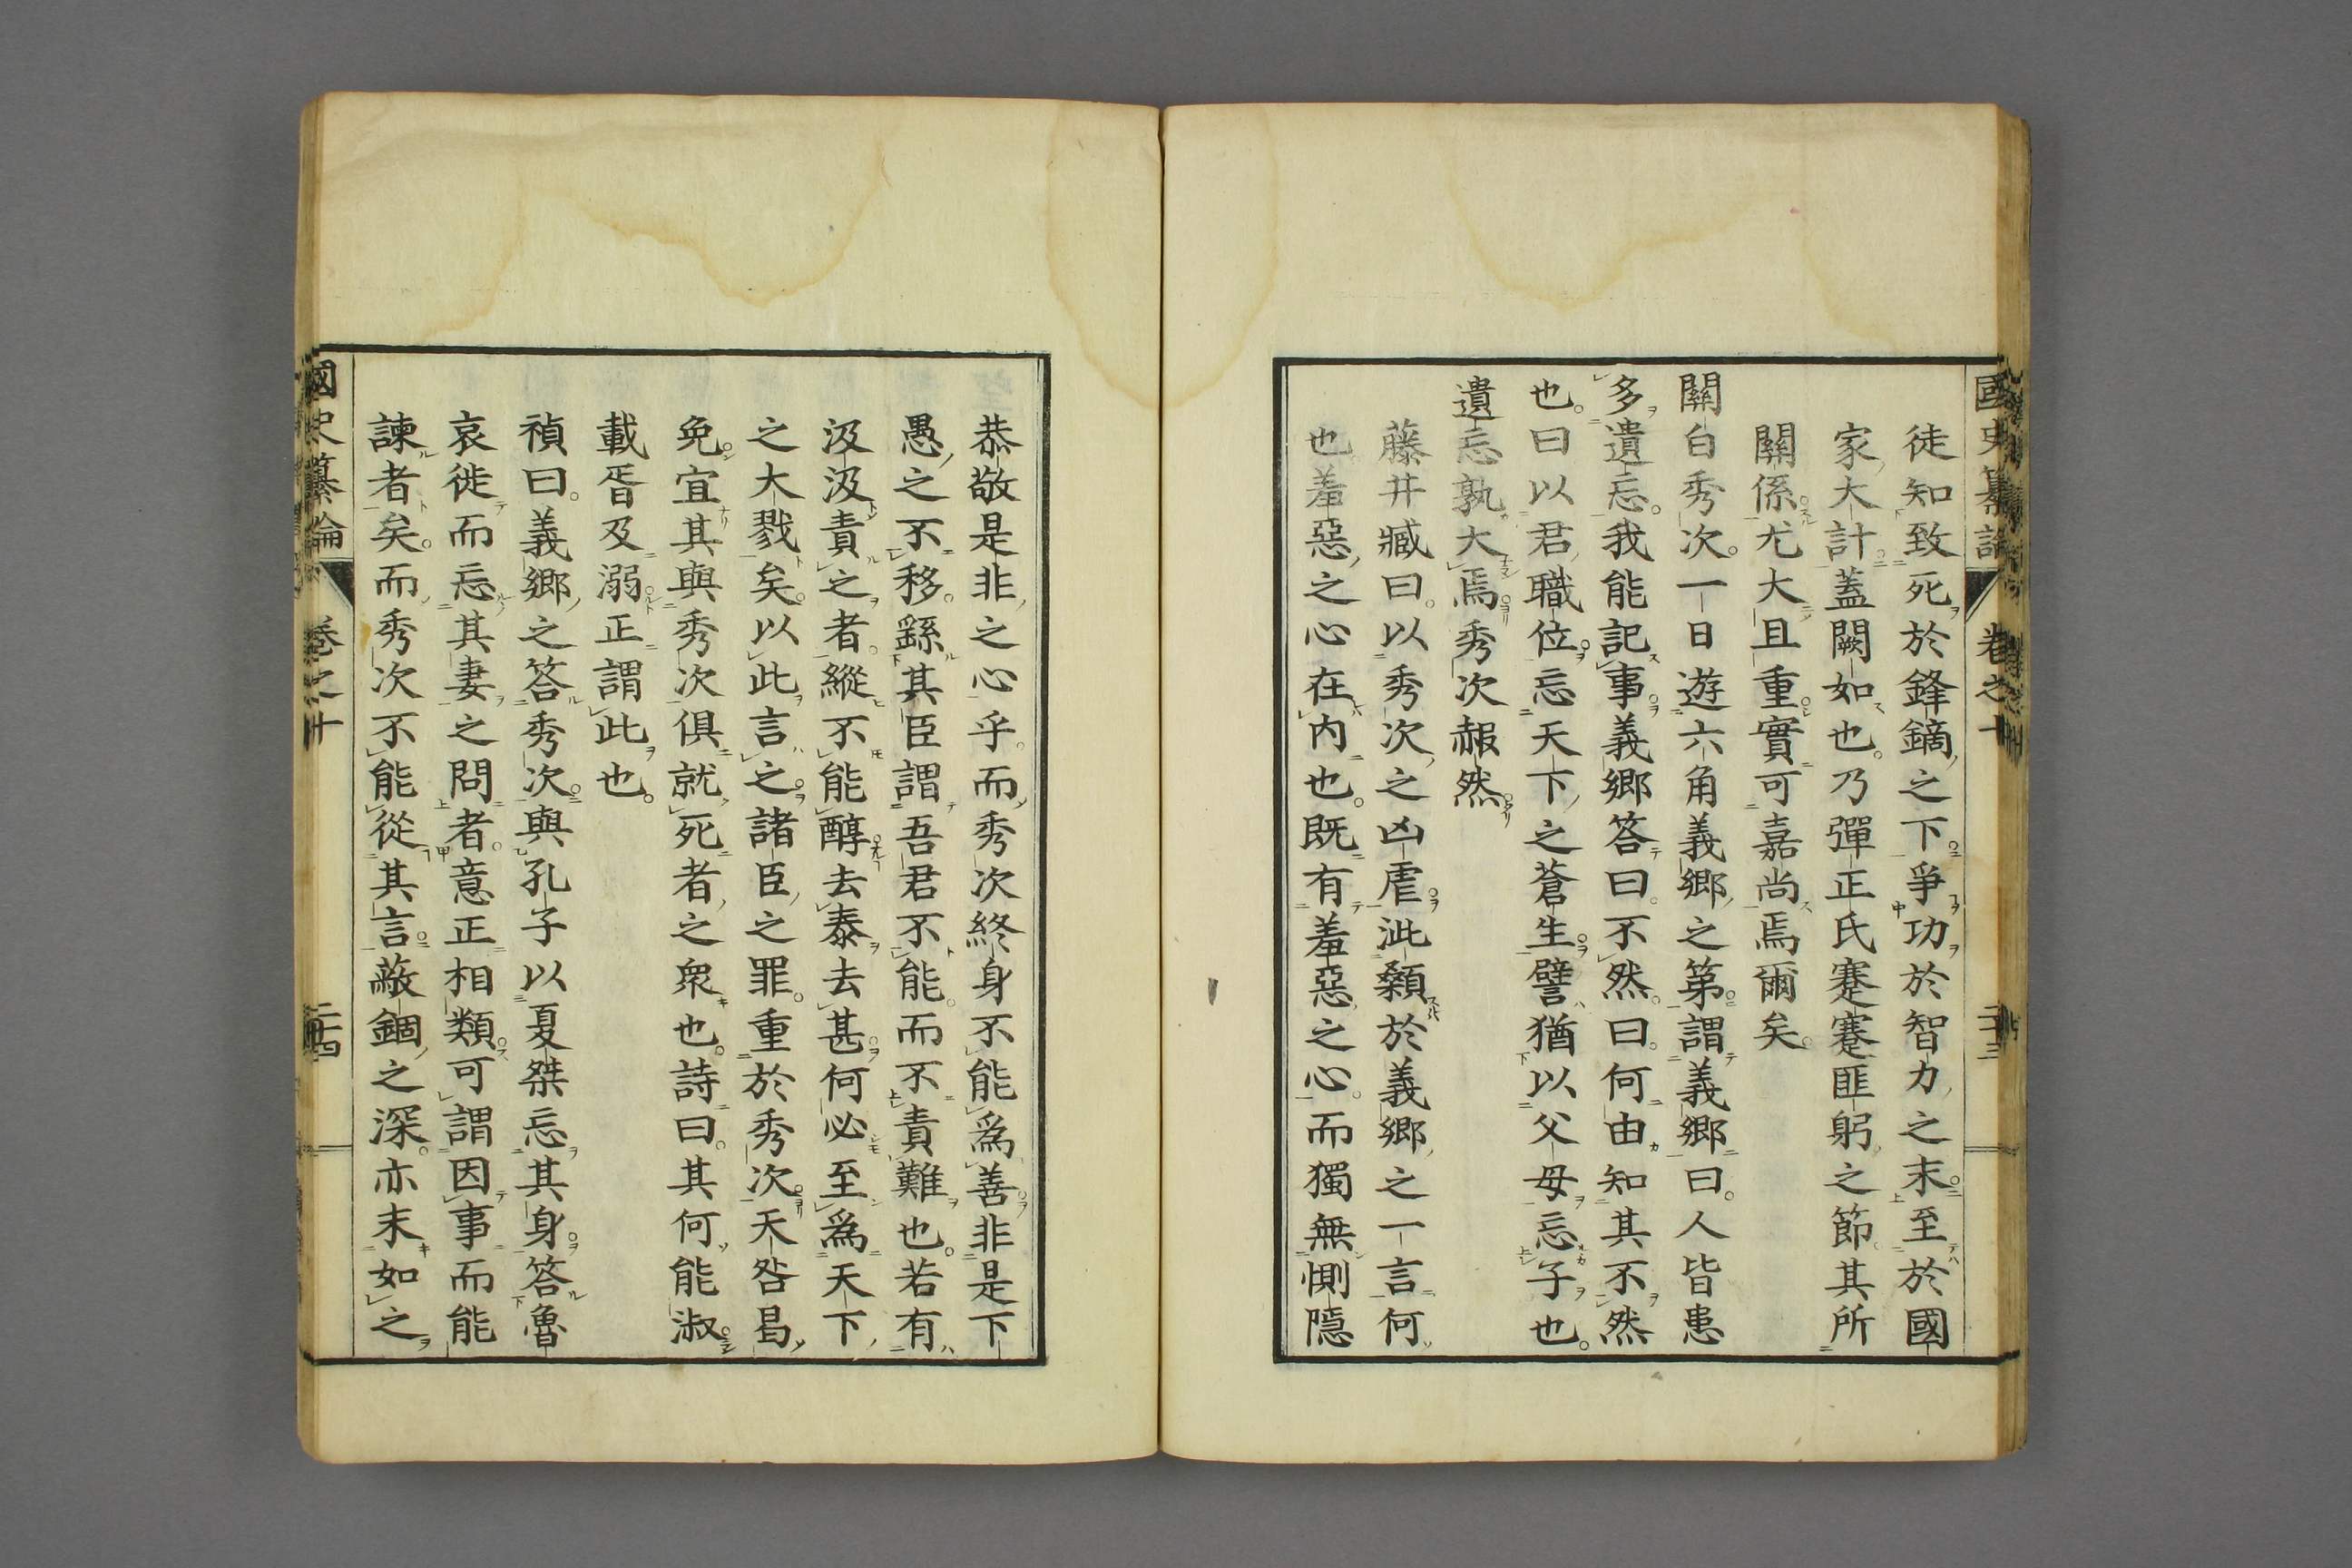 國史纂論 卷之十 二十三
徒知致死於鋒鏑之下爭功於智力之末至於國
家大計蓋闕如也乃彈正氏蹇蹇匪躬之節其所
關係尤大且重實可嘉尚焉爾矣
關白秀次一日遊六角義鄉之第謂義鄉曰人皆患
多遺忘我能記事義鄉答曰不然曰何由知其不然
也曰以君職位忘天下之蒼生譬猶以父母忘子也
遺忘孰大焉秀次赧然
藤井臧曰以秀次之凶虐泚顙於義鄉之一言何
也羞惡之心在內也既有羞惡之心而獨無惻隱
恭敬是非之心乎而秀次終身不能爲善非是下
愚之不移繇其臣謂吾君不能而不責難也若有
汲汲責之者縱不能醇去泰去甚何必至爲天下
之大戮矣以此言之諸臣之罪重於秀次天咎曷
免宜其與秀次俱就死者之衆也詩曰其何能淑
載胥及溺正謂此也
禎曰義鄉之答秀次與孔子以夏桀忘其身答魯
哀徙而忘其妻之問者意正相類可謂因事而能
諫者矣而秀次不能從其言蔽錮之深亦末如之
國史纂論 卷之十 二十四